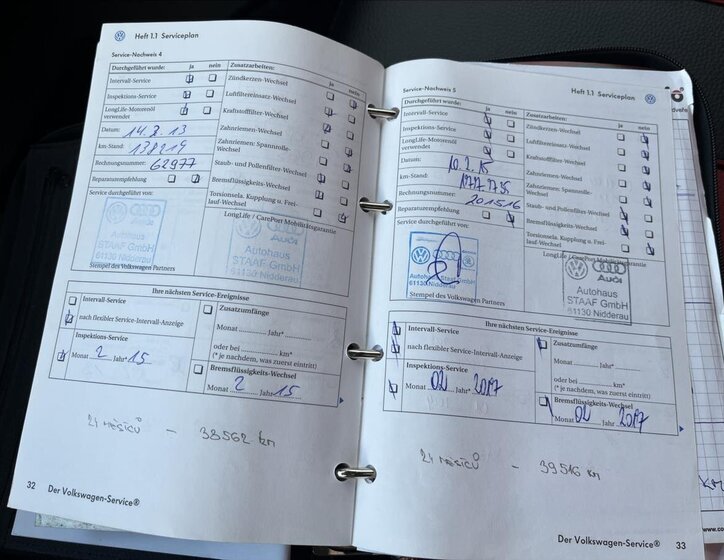 Heft 1.1 Serviceplan
Service-Nachweis 4
Durchgeführt wurde: ja nein
Zusatzarbeiten: ja nein
Intervall-Service
Inspektions-Service
LongLife-Motorenöl verwendet
Datum: 14.2.13
km-Stand: 138219
Rechnungsnummer: 62977
Reparaturempfehlung
Zündkerzen-Wechsel
Luftfiltereinsatz-Wechsel
Kraftstofffilter-Wechsel
Zahnriemen-Wechsel
Zahnriemen: Spannrolle-Wechsel
Staub- und Pollenfilter-Wechsel
Bremsflüssigkeits-Wechsel
Torsionsela. Kupplung u. Frei-
lauf-Wechsel
Service durchgeführt von:
LongLife / CarePort Mobilitätsgarantie
Autohaus
STAAF GmbH
61130 Nidderau
Audi
Autohaus
STAAF GmbH
61130 Nidderau
Stempel des Volkswagen Partners
Ihre nächsten Service-Ereignisse
Intervall-Service
nach flexibler Service-Intervall-Anzeige
Inspektions-Service
Monat 2 Jahr* 15
Zusatzumfänge
Monat Jahr*
oder bei km*
(* je nachdem, was zuerst eintritt)
Bremsflüssigkeits-Wechsel
Monat 2 Jahr 15
24 měsíců – 38562 km
32 Der Volkswagen-Service®
Service-Nachweis 5
Heft 1.1 Serviceplan
Durchgeführt wurde: ja nein
Zusatzarbeiten: ja nein
Intervall-Service
Inspektions-Service
LongLife-Motorenöl verwendet
Datum: 10.2.15
km-Stand:
Rechnungsnummer: 201516
Reparaturempfehlung
Zündkerzen-Wechsel
Luftfiltereinsatz-Wechsel
Kraftstofffilter-Wechsel
Zahnriemen-Wechsel
Zahnriemen: Spannrolle-Wechsel
Staub- und Pollenfilter-Wechsel
Bremsflüssigkeits-Wechsel
Torsionsela. Kupplung u. Frei-
lauf-Wechsel
Service durchgeführt von:
LongLife / CarePort Mobilitätsgarantie
61130 Nidderau
Audi
Autohaus
STAAF GmbH
61130 Nidderau
Stempel des Volkswagen Partners
Ihre nächsten Service-Ereignisse
Intervall-Service
nach flexibler Service-Intervall-Anzeige
Inspektions-Service
Monat 02 Jahr* 2017
Zusatzumfänge
Monat Jahr*
oder bei km*
(* je nachdem, was zuerst eintritt)
Bremsflüssigkeits-Wechsel
Monat 02 Jahr 2017
24 měsíců – 39516 km
Der Volkswagen-Service® 33